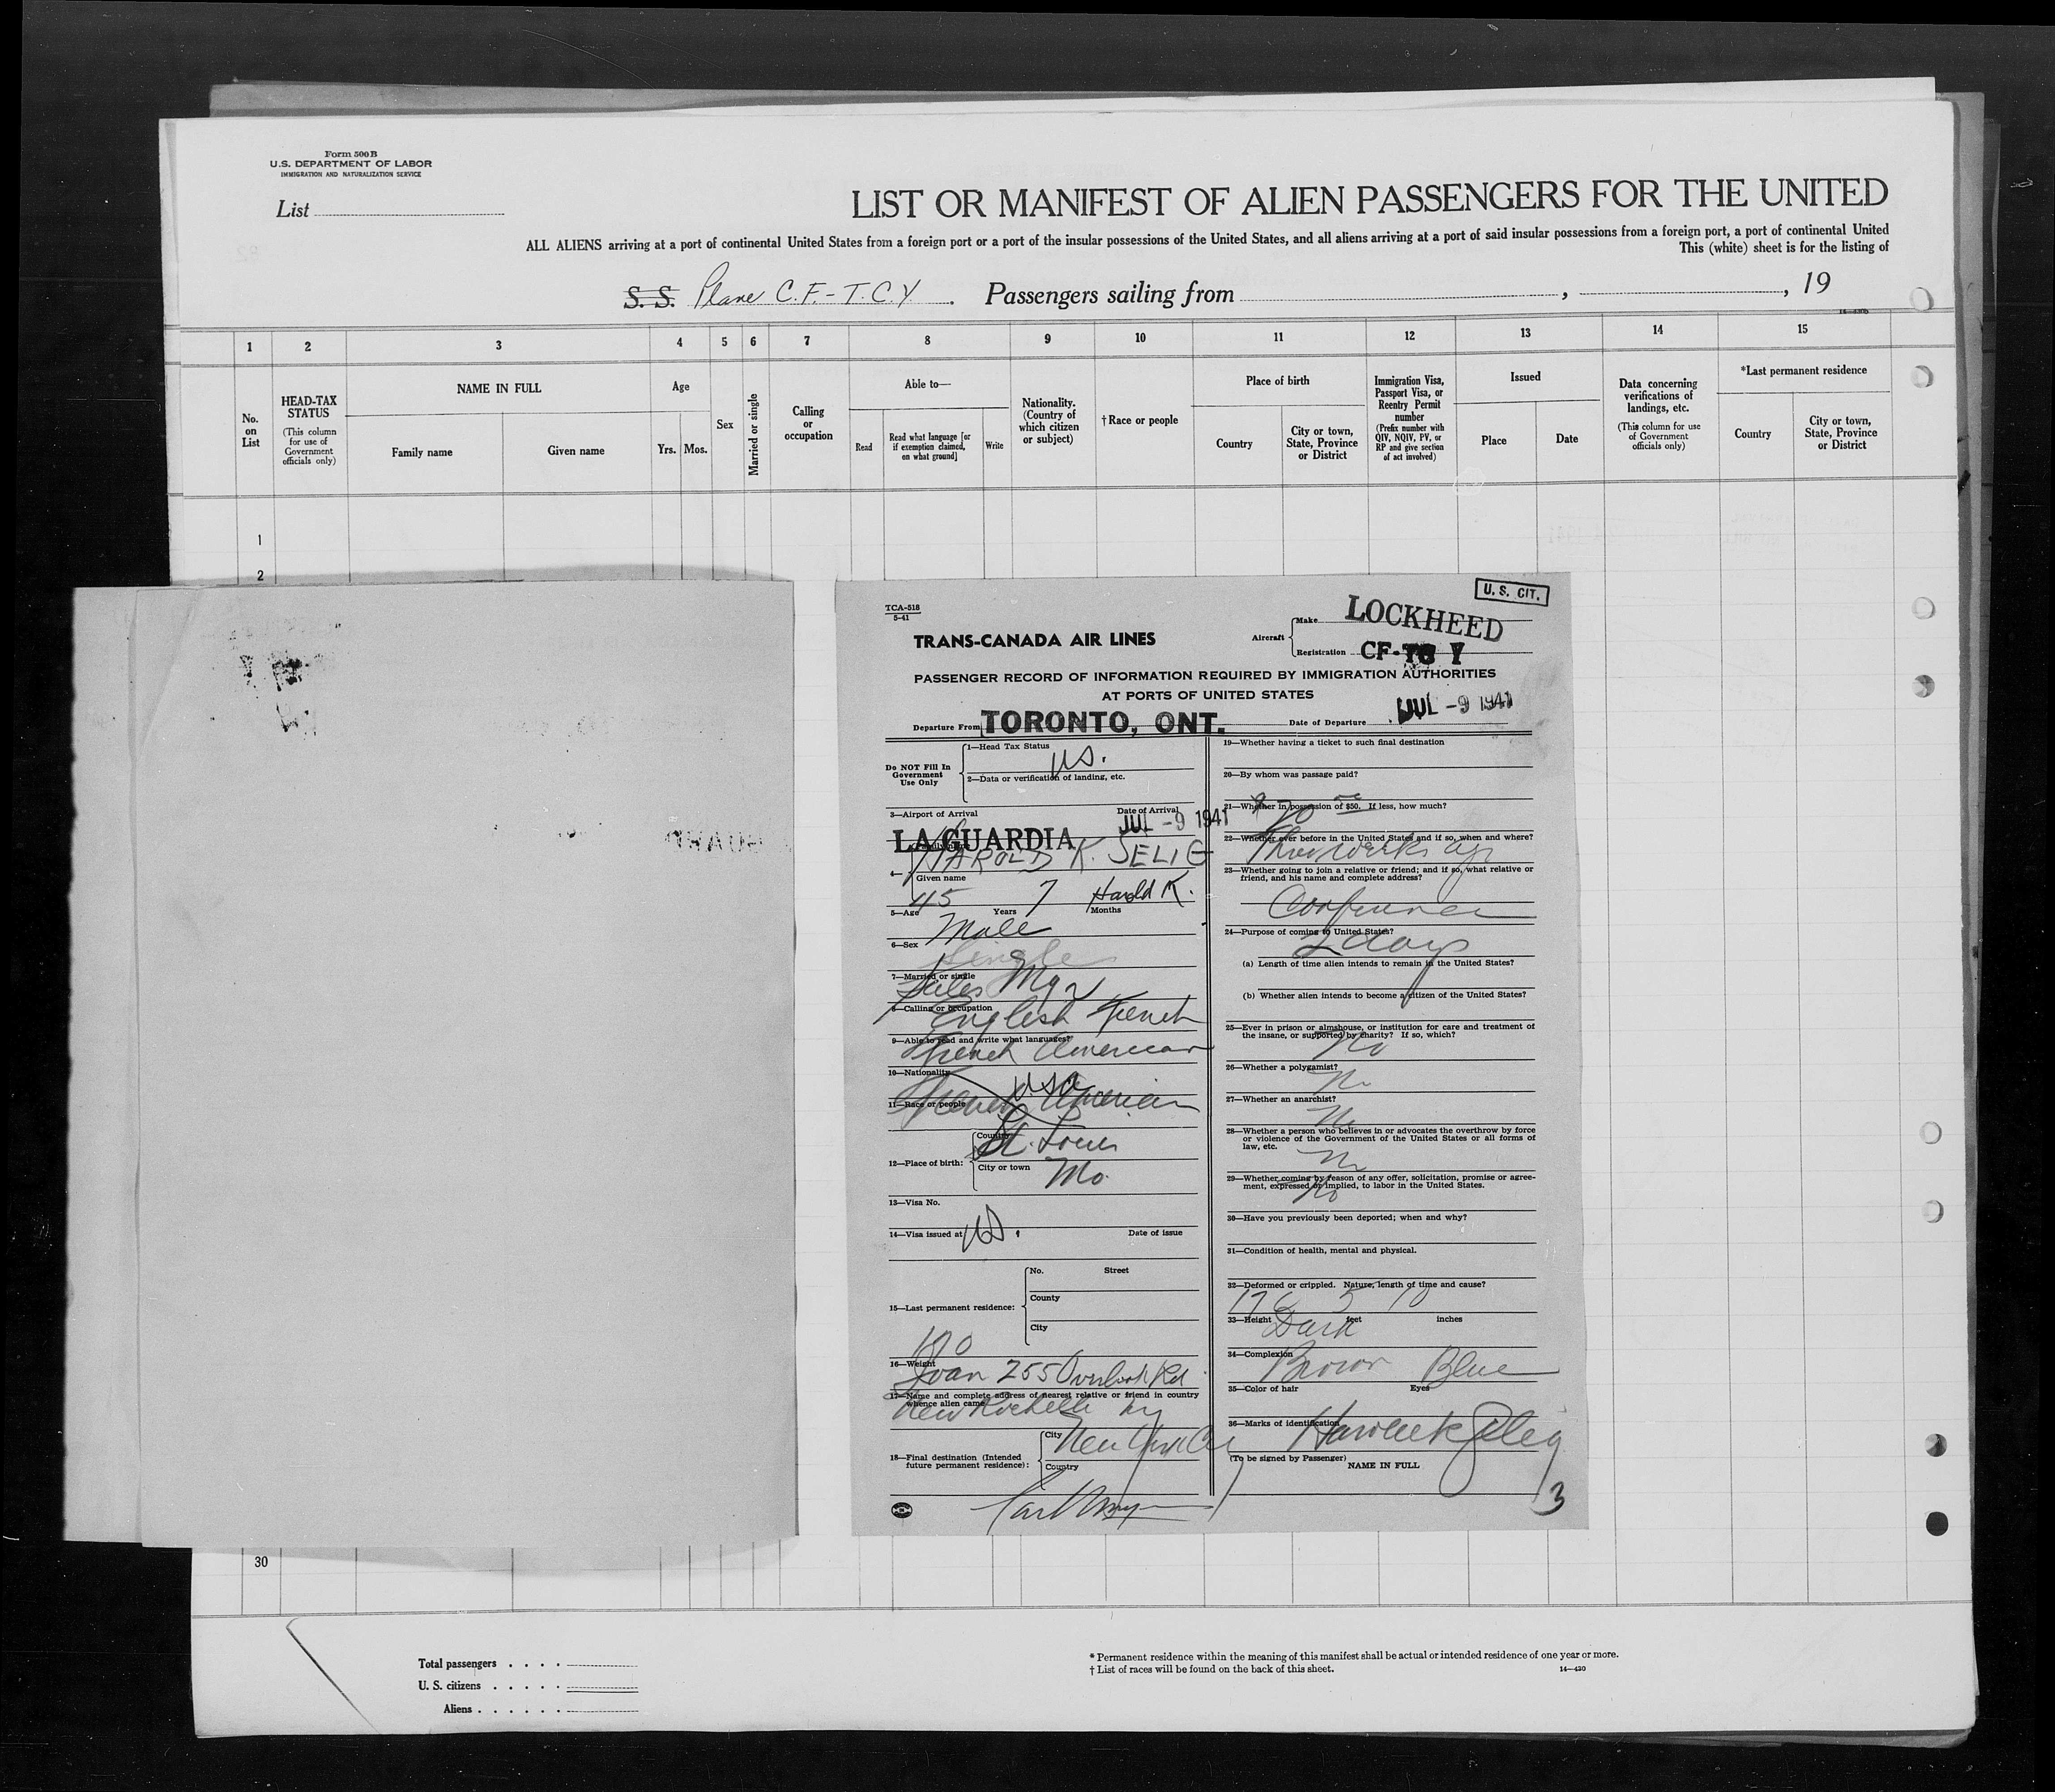 Form 500 B
U.S. DEPARTMENT OF LABOR
IMMIGRATION AND NATURALIZATION SERVICE
List
LIST OR MANIFEST OF ALIEN PASSENGERS FOR THE UNITED
ALL ALIENS arriving at a port of continental United States from a foreign port or a port of the insular possessions of the United States, and all aliens arriving at a port of said insular possessions from a foreign port, a port of continental United
This (white) sheet is for the listing of
S. S. Plane C.F.-T.C.Y. Passengers sailing from , , 19
1 2 3 4 5 6 7 8 9 10 11 12 13 14 15
No. on List
HEAD-TAX STATUS
(This column for use of Government officials only)
NAME IN FULL
Family name
Given name
Age
Yrs. Mos.
Sex
Married or single
Calling or occupation
Able to—
Read
Read what language [or if exemption claimed, on what ground]
Write
Nationality. (Country of which citizen or subject)
† Race or people
Place of birth
Country
City or town, State, Province or District
Immigration Visa, Passport Visa, or Reentry Permit number
(Prefix number with QIV, NQIV, PV, or RP and give section of act involved)
Issued
Place
Date
Data concerning verifications of landings, etc.
(This column for use of Government officials only)
*Last permanent residence
Country
City or town, State, Province or District
1
2
TCA-518
5-41
U. S. CIT.
TRANS-CANADA AIR LINES
Aircraft
Make LOCKHEED
Registration CF-TCY
PASSENGER RECORD OF INFORMATION REQUIRED BY IMMIGRATION AUTHORITIES
AT PORTS OF UNITED STATES
Departure From TORONTO, ONT. Date of Departure JUL -9 1941
Do NOT Fill In
Government
Use Only
1—Head Tax Status
US.
2—Data or verification of landing, etc.
3—Airport of Arrival Date of Arrival
LA GUARDIA JUL -9 1941
HAROLD K. SELIG
4—
Given name
45 7 Harold K.
5—Age Years Months
Male
6—Sex
Single
7—Married or single
Sales Mgr
8—Calling or occupation
English French
9—Able to read and write what languages?
French American
10—Nationality
USA
French American
11—Race or people
12—Place of birth:
Country
St. Louis
City or town
Mo.
13—Visa No.
14—Visa issued at US. Date of issue
15—Last permanent residence:
No. Street
County
City
170
16—Weight
Joan 255 Overlook Rd
17—Name and complete address of nearest relative or friend in country
whence alien came
New Rochelle Ny
18—Final destination (Intended
future permanent residence):
City New York City
Country
19—Whether having a ticket to such final destination
20—By whom was passage paid?
21—Whether in possession of $50. If less, how much?
$70
22—Whether ever before in the United States and if so, when and where?
Three weeks ago
23—Whether going to join a relative or friend; and if so, what relative or
friend, and his name and complete address?
Conference
24—Purpose of coming to United States?
2 days
(a) Length of time alien intends to remain in the United States?
(b) Whether alien intends to become a citizen of the United States?
25—Ever in prison or almshouse, or institution for care and treatment of
the insane, or supported by charity? If so, which?
No
26—Whether a polygamist?
No
27—Whether an anarchist?
No
28—Whether a person who believes in or advocates the overthrow by force
or violence of the Government of the United States or all forms of
law, etc.
No
29—Whether coming by reason of any offer, solicitation, promise or agree-
ment, expressed or implied, to labor in the United States.
No
30—Have you previously been deported; when and why?
31—Condition of health, mental and physical.
32—Deformed or crippled. Nature, length of time and cause?
5 10
33—Height feet inches
Dark
34—Complexion
Brown Blue
35—Color of hair Eyes
36—Marks of identification
Harold K Selig
(To be signed by Passenger)
NAME IN FULL
3
30
Total passengers
U. S. citizens
Aliens
* Permanent residence within the meaning of this manifest shall be actual or intended residence of one year or more.
† List of races will be found on the back of this sheet.
14—420